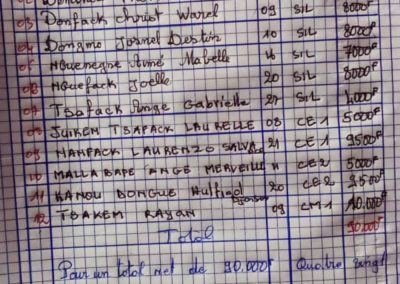 03 Donfack Christ Warel 09 SIL 8000F
04 Dongmo Jornel Destin 10 SIL 8000F
05 Nguenegne Aimé Mabelle 16 SIL 7000F
06 Nguefack Joelle 20 SIL 8000F
07 Tsafack Ange Gabrielle 27 SIL 4000F
JUIKEM TSAFACK LAURELLE 08 CE1 5000F
09 MAHFACK LAURENZO 21 CE1 9500F
10 MALLA BAPE ANGE MERVEILLE 11 CE2 5000F
11 KANOU DONGUE 20 CE2 2500F
12 TSAKEM RAYAN 09 CM1 10.000F
Total 90.000F
Pour un total net de 90.000F Quatre vingt